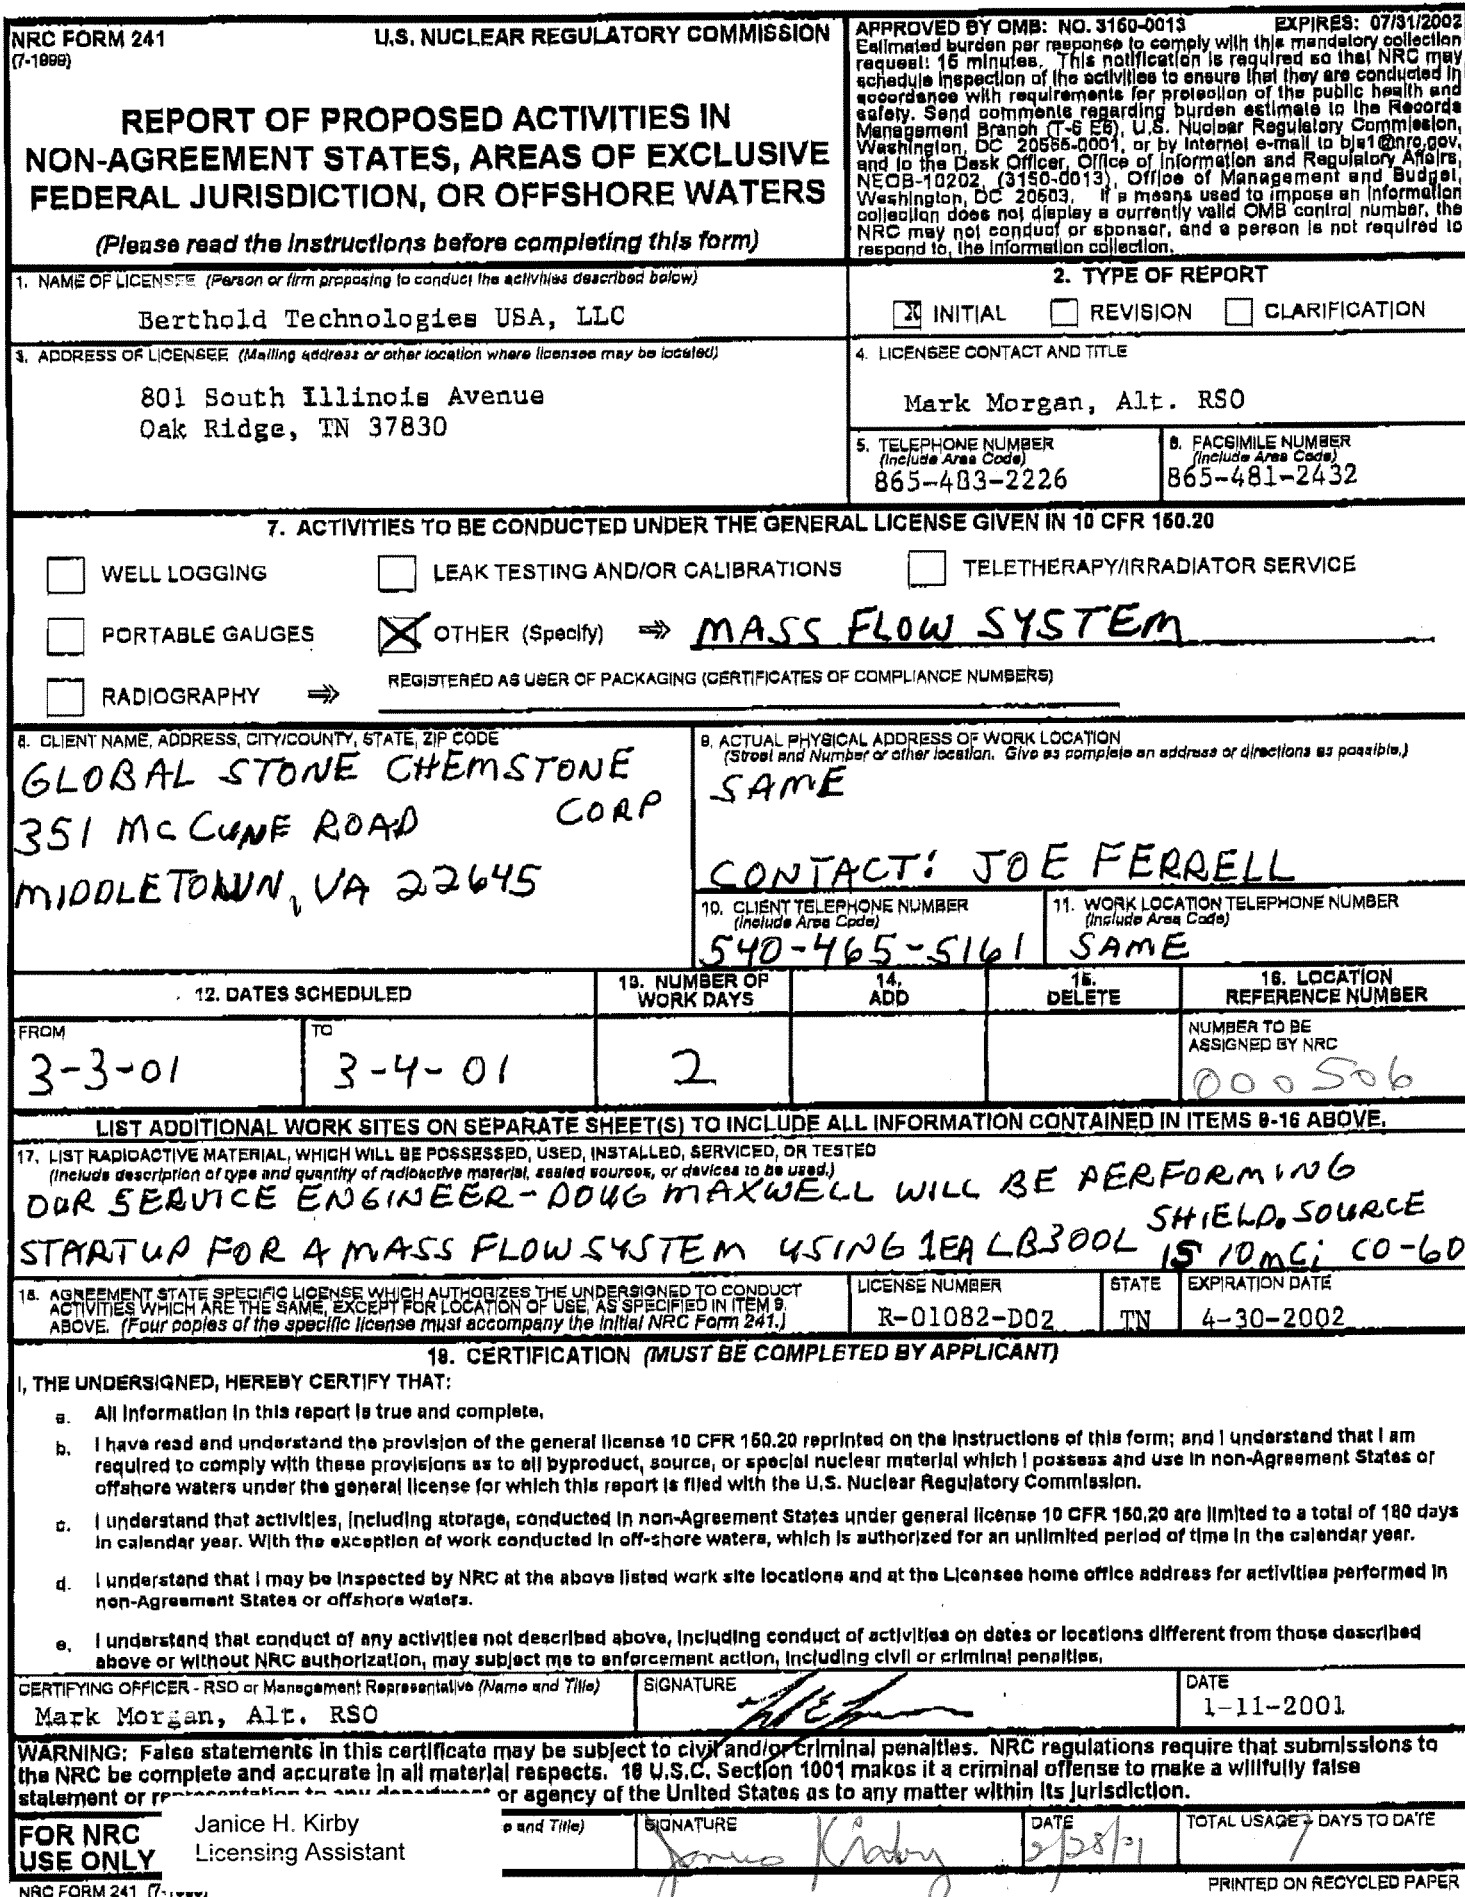 NRC FORM 241
(7-1999)
U.S. NUCLEAR REGULATORY COMMISSION
REPORT OF PROPOSED ACTIVITIES IN
NON-AGREEMENT STATES, AREAS OF EXCLUSIVE
FEDERAL JURISDICTION, OR OFFSHORE WATERS
(Please read the instructions before completing this form)
APPROVED BY OMB: NO. 3150-0013 EXPIRES: 07/31/2002
Estimated burden per response to comply with this mandatory collection
request: 15 minutes. This notification is required so that NRC may
schedule inspection of the activities to ensure that they are conducted in
accordance with requirements for protection of the public health and
safety. Send comments regarding burden estimate to the Records
Management Branch (T-6 E6), U.S. Nuclear Regulatory Commission,
Washington, DC 20555-0001, or by Internet e-mail to bjs1@nrc.gov,
and to the Desk Officer, Office of Information and Regulatory Affairs,
NEOB-10202, (3150-0013), Office of Management and Budget,
Washington, DC 20503. If a means used to impose an information
collection does not display a currently valid OMB control number, the
NRC may not conduct or sponsor, and a person is not required to
respond to, the information collection.
1. NAME OF LICENSEE (Person or firm proposing to conduct the activities described below)
Berthold Technologies USA, LLC
2. TYPE OF REPORT
X INITIAL REVISION CLARIFICATION
3. ADDRESS OF LICENSEE (Mailing address or other location where licensee may be located)
801 South Illinois Avenue
Oak Ridge, TN 37830
4. LICENSEE CONTACT AND TITLE
Mark Morgan, Alt. RSO
5. TELEPHONE NUMBER
(Include Area Code)
865-483-2226
6. FACSIMILE NUMBER
(Include Area Code)
865-481-2432
7. ACTIVITIES TO BE CONDUCTED UNDER THE GENERAL LICENSE GIVEN IN 10 CFR 150.20
WELL LOGGING LEAK TESTING AND/OR CALIBRATIONS TELETHERAPY/IRRADIATOR SERVICE
PORTABLE GAUGES X OTHER (Specify) ⇒ MASS FLOW SYSTEM
RADIOGRAPHY ⇒ REGISTERED AS USER OF PACKAGING (CERTIFICATES OF COMPLIANCE NUMBERS)
8. CLIENT NAME, ADDRESS, CITY/COUNTY, STATE, ZIP CODE
GLOBAL STONE CHEMSTONE
CORP
351 McCUNE ROAD
MIDDLETOWN, VA 22645
9. ACTUAL PHYSICAL ADDRESS OF WORK LOCATION
(Street and Number or other location. Give as complete an address or directions as possible.)
SAME
CONTACT: JOE FERRELL
10. CLIENT TELEPHONE NUMBER
(Include Area Code)
540-465-5161
11. WORK LOCATION TELEPHONE NUMBER
(Include Area Code)
SAME
12. DATES SCHEDULED
13. NUMBER OF
WORK DAYS
14.
ADD
15.
DELETE
16. LOCATION
REFERENCE NUMBER
FROM
3-3-01
TO
3-4-01
2
NUMBER TO BE
ASSIGNED BY NRC
000506
LIST ADDITIONAL WORK SITES ON SEPARATE SHEET(S) TO INCLUDE ALL INFORMATION CONTAINED IN ITEMS 8-16 ABOVE.
17. LIST RADIOACTIVE MATERIAL, WHICH WILL BE POSSESSED, USED, INSTALLED, SERVICED, OR TESTED
(Include description of type and quantity of radioactive material, sealed sources, or devices to be used.)
OUR SERVICE ENGINEER-DOUG MAXWELL WILL BE PERFORMING
STARTUP FOR A MASS FLOW SYSTEM USING 1EA LB300L SHIELD. SOURCE
IS 10mCi CO-60
18. AGREEMENT STATE SPECIFIC LICENSE WHICH AUTHORIZES THE UNDERSIGNED TO CONDUCT
ACTIVITIES WHICH ARE THE SAME, EXCEPT FOR LOCATION OF USE, AS SPECIFIED IN ITEM 9.
ABOVE. (Four copies of the specific license must accompany the initial NRC Form 241.)
LICENSE NUMBER
R-01082-D02
STATE
TN
EXPIRATION DATE
4-30-2002
19. CERTIFICATION (MUST BE COMPLETED BY APPLICANT)
I, THE UNDERSIGNED, HEREBY CERTIFY THAT:
a. All information in this report is true and complete.
b. I have read and understand the provision of the general license 10 CFR 150.20 reprinted on the instructions of this form; and I understand that I am
required to comply with these provisions as to all byproduct, source, or special nuclear material which I possess and use in non-Agreement States or
offshore waters under the general license for which this report is filed with the U.S. Nuclear Regulatory Commission.
c. I understand that activities, including storage, conducted in non-Agreement States under general license 10 CFR 150.20 are limited to a total of 180 days
in calendar year. With the exception of work conducted in off-shore waters, which is authorized for an unlimited period of time in the calendar year.
d. I understand that I may be inspected by NRC at the above listed work site locations and at the Licensee home office address for activities performed in
non-Agreement States or offshore waters.
e. I understand that conduct of any activities not described above, including conduct of activities on dates or locations different from those described
above or without NRC authorization, may subject me to enforcement action, including civil or criminal penalties.
CERTIFYING OFFICER - RSO or Management Representative (Name and Title)
Mark Morgan, Alt. RSO
SIGNATURE
DATE
1-11-2001
WARNING: False statements in this certificate may be subject to civil and/or criminal penalties. NRC regulations require that submissions to
the NRC be complete and accurate in all material respects. 18 U.S.C. Section 1001 makes it a criminal offense to make a willfully false
statement or representation to any department or agency of the United States as to any matter within its jurisdiction.
FOR NRC
USE ONLY
Janice H. Kirby
Licensing Assistant
and Title)
SIGNATURE
Janice Kirby
DATE
2/28/01
TOTAL USAGE - DAYS TO DATE
NRC FORM 241
PRINTED ON RECYCLED PAPER